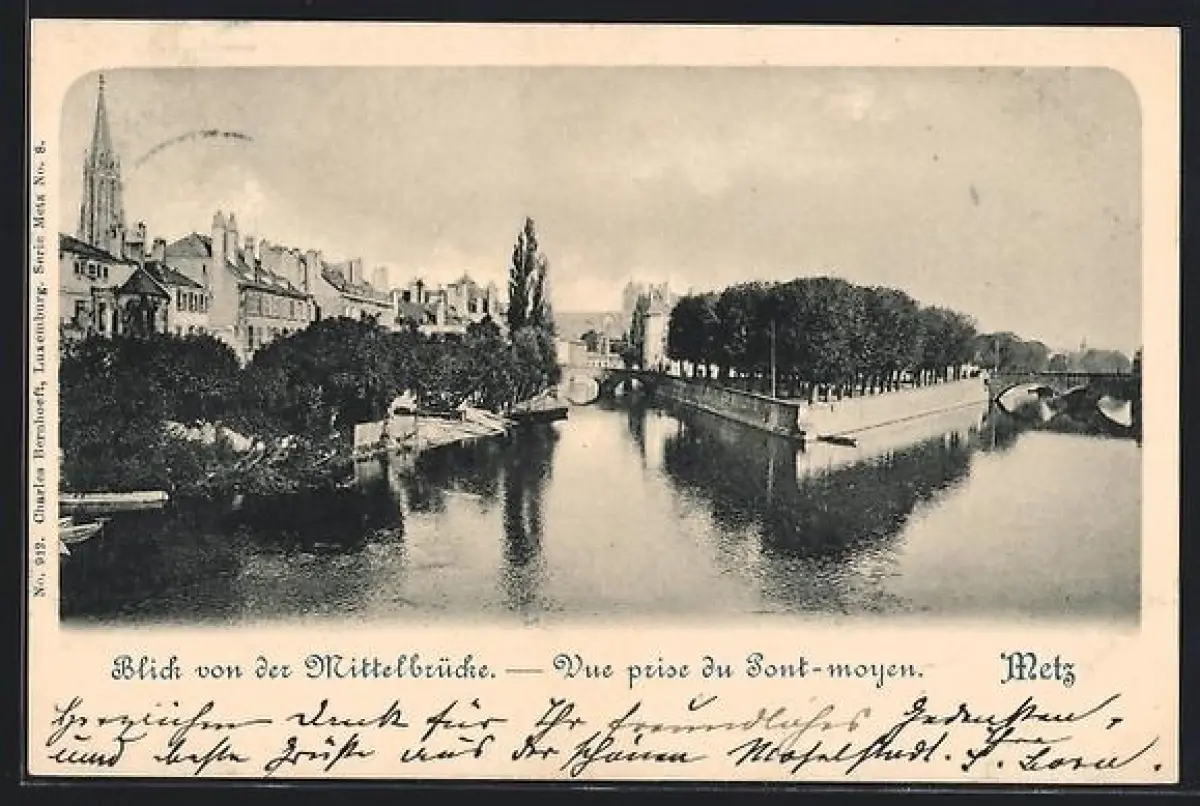 No. 912. Charles Bernhoeft, Luxemburg. Serie Metz No. 8.
Blick von der Mittelbrücke. — Vue prise du Pont-moyen. Metz
Herzlichen Dank für Ihr freundliches Gedenken,
und beste Grüße aus der schönen Moselstadt.